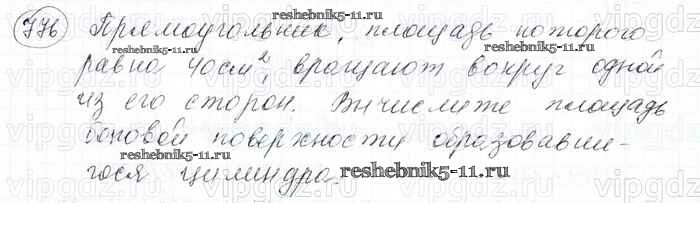 776 Прямоугольник, площадь которого
равна 40см², вращают вокруг одной
из его сторон. Вычислите площадь
боковой поверхности образовавше-
гося цилиндра.
reshebnik5-11.ru
reshebnik5-11.ru
reshebnik5-11.ru
reshebnik5-11.ru
reshebnik5-11.ru
vipgdz.ru
vipgdz.ru
vipgdz.ru